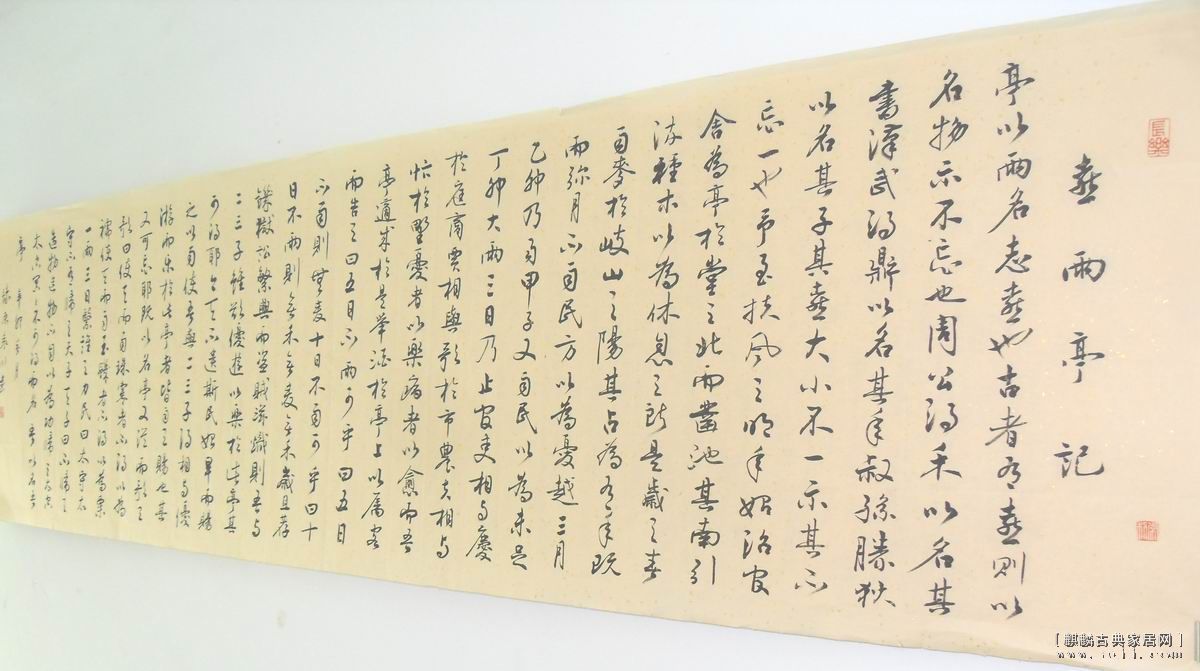 長樂
喜雨亭記
亭以雨名志喜也古者有喜則以
名物示不忘也周公得禾以名其
書漢武得鼎以名其年叔孫勝狄
以名其子其喜大小不一示其不
忘一也予至扶風之明年始治官
舍為亭於堂之北而鑿池其南引
流種木以為休息之所是歲之春
雨麥於岐山之陽其占為有年既
而彌月不雨民方以為憂越三月
乙卯乃雨甲子又雨民以為未足
丁卯大雨三日乃止官吏相與慶
於庭商賈相與歌於市農夫相與
忭於野憂者以樂病者以愈而吾
亭適成於是舉酒於亭上以属客
而告之曰五日不雨可乎曰五日
不雨則無麦十日不雨可乎曰十
日不雨則無禾無麦無禾歲且荐
饑獄訟繁興而盜賊滋熾則吾與
二三子雖欲優遊以樂於此亭其
可得耶今天不遺斯民始旱而賜
之以雨使吾與二三子得相與優
游而樂於此亭者皆雨之賜也其
又可忘耶既以名亭又從而歌之
歌曰使天而雨珠寒者不得以為
襦使天而雨玉饑者不得以為粟
一雨三日繄誰之力民曰太守太
守不有歸之天子天子曰不歸之
造物造物不自以為功歸之太空
太空冥冥不可得而名吾以名吾
亭 辛卯
[麒麟古典家居网]